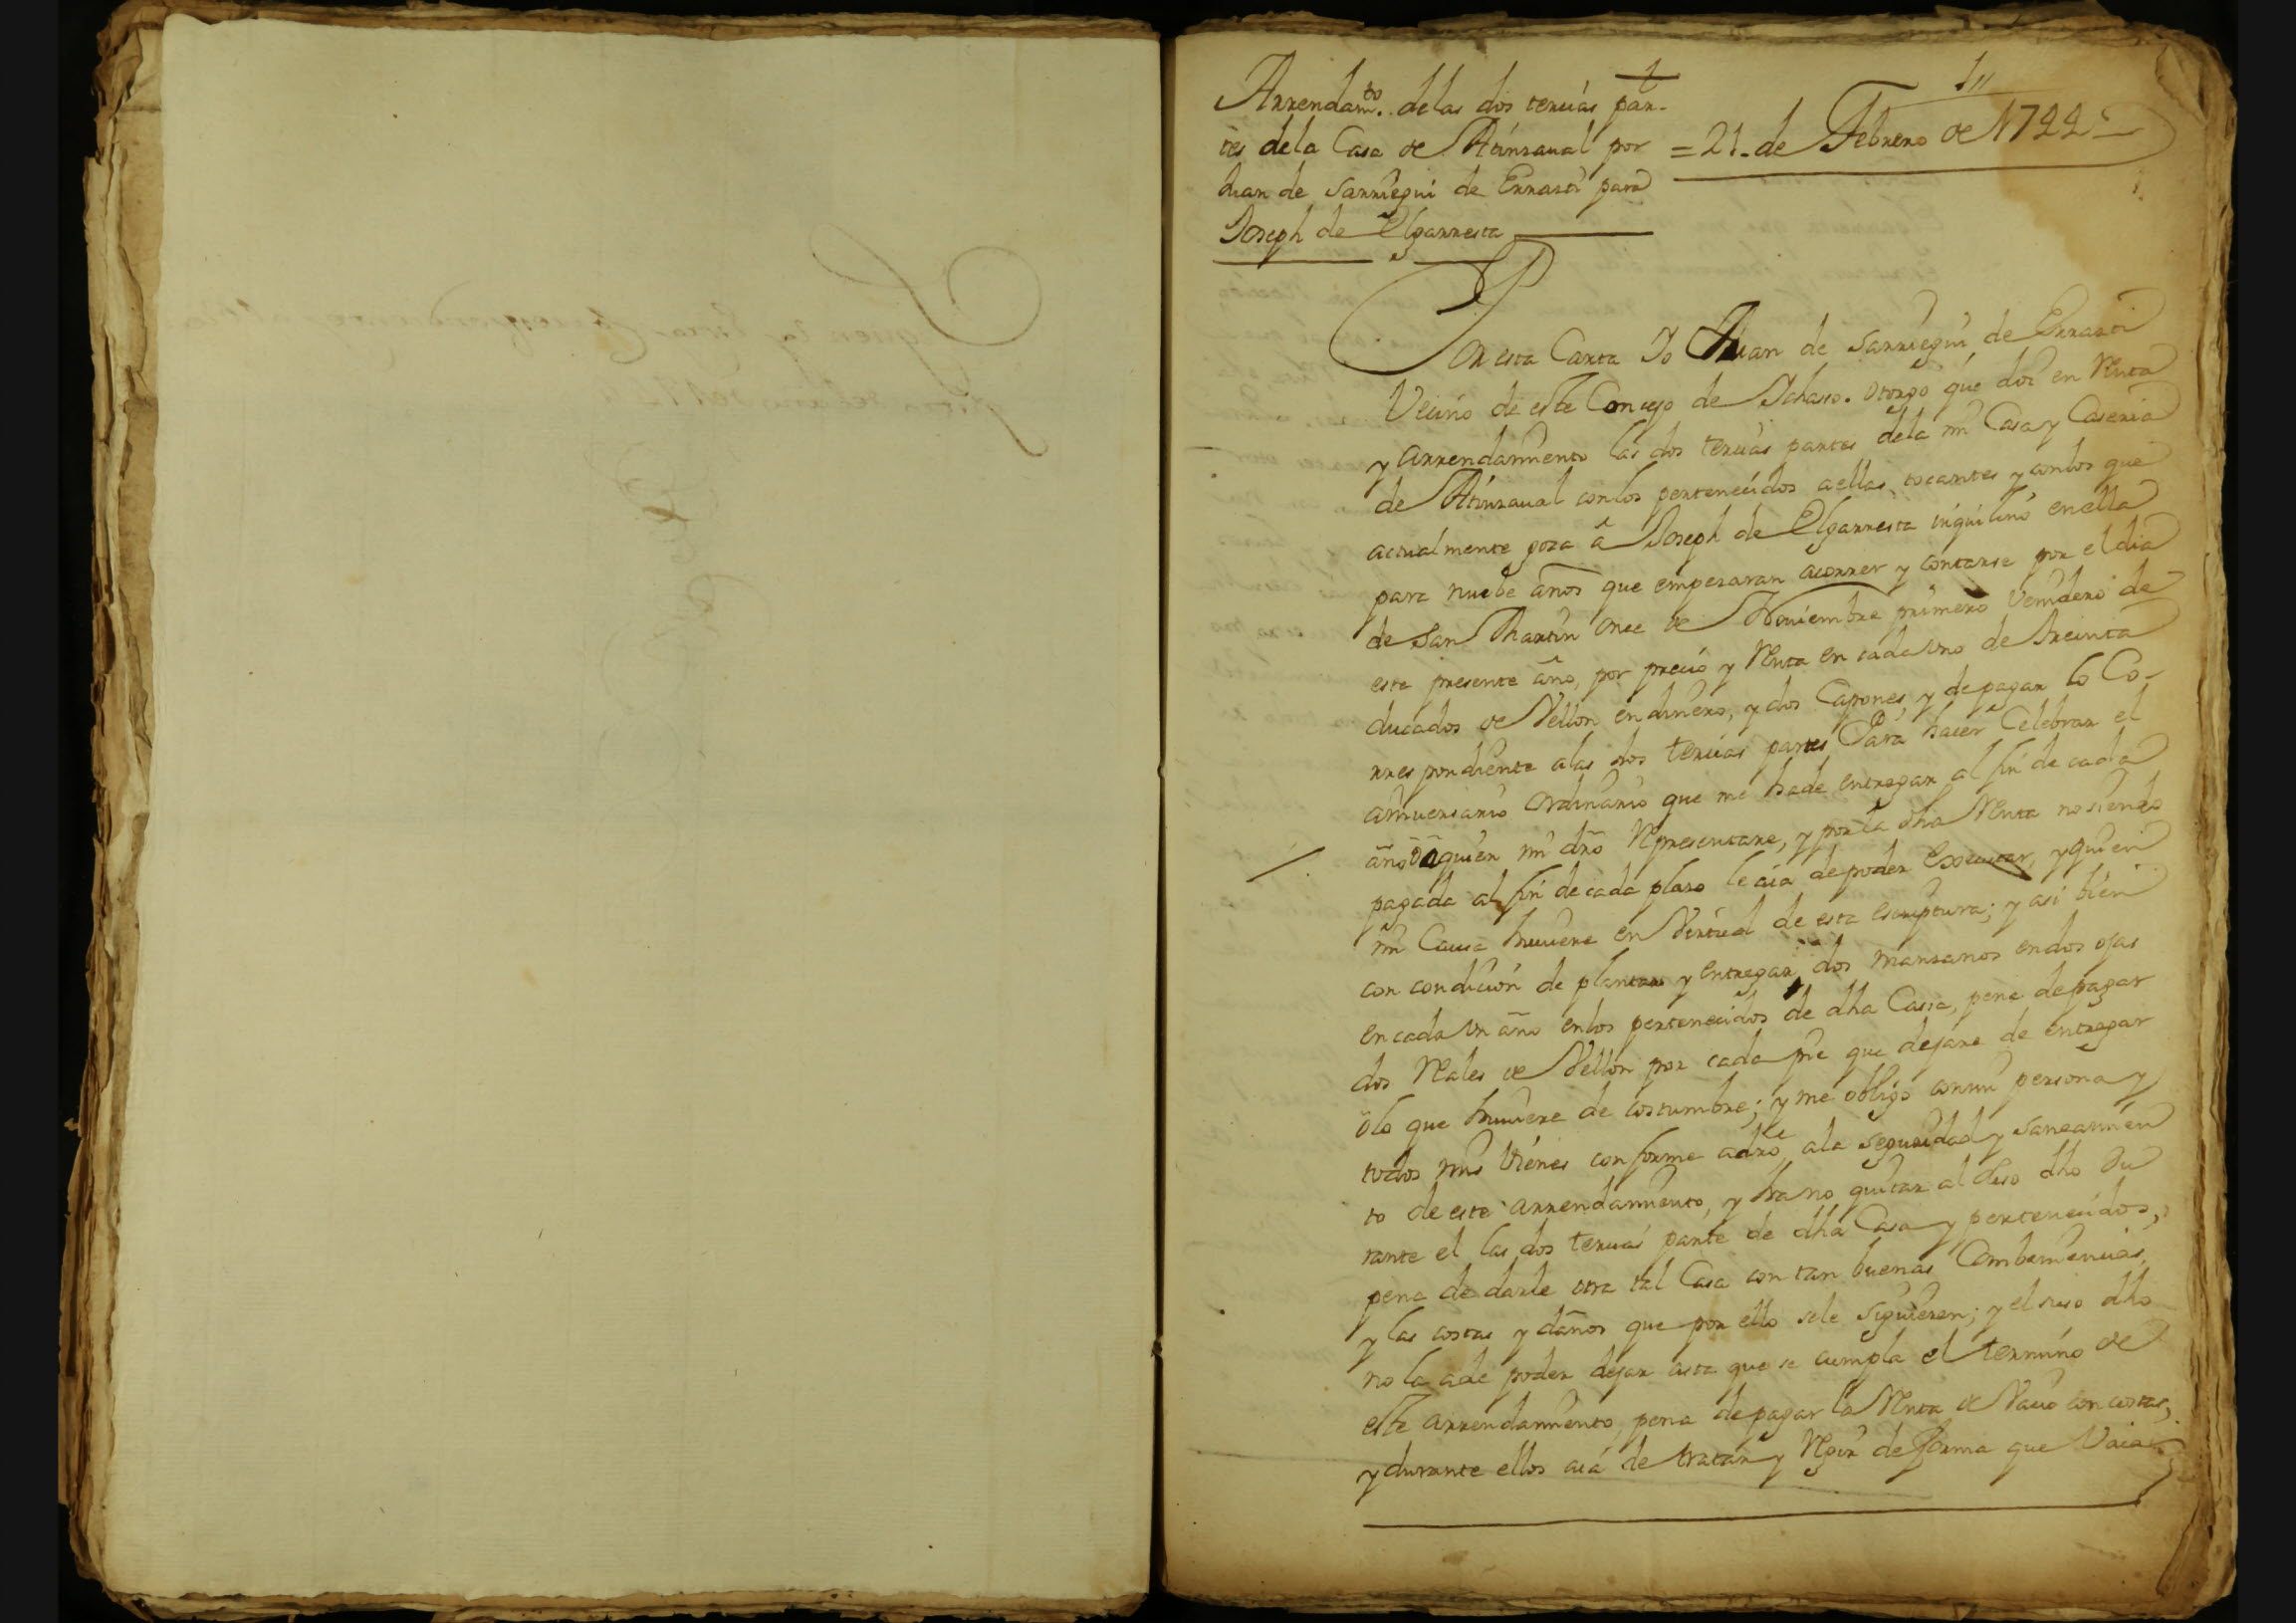 Arrendam.to de las dos tercias par-
tes de la Casa de Atinzaual por
Juan de Sarriegui de Errazti para
Joseph de Elgarresta
= 21. de Febrero de 1722 =
Por esta Carta Yo Juan de Sarriegui de Errazti
Vecino de este Concejo de Ichasso. otorgo que doi en Renta
y Arrendamiento las dos tercias partes de la mi Casa y Caseria
de Atinzaual con los pertenecidos a ellas tocantes y con los que
actualmente goza â Joseph de Elgarresta inquilino en ella
para nuebe años que empezaran a correr y contarse por el dia
de San Martin onze de Noviembre primero Venidero de
este presente año, por precio y Renta en cada vno de treinta
ducados de Vellon en dinero, y dos Capones, y de pagar lo Co-
rrespondiente a las dos tercias partes Para hacer Celebrar el
aniuersario Ordinario que me hade entregar al fin de cada
año ô a quien mi dro Representare, y por la dha Renta no siendo
pagada al fin de cada plazo le aia de poder Executar, y quien
mi Causa huuiere en Virtud de esta escriptura; y asi bien
con condicion de plantar y entregar dos manzanos en dos ojas
en cada vn año en los pertenecidos de dha Cassa, pena de pagar
dos Reales de Vellon por cada pie que dejare de entregar
ô lo que huuiere de costumbre; y me obligo con mi persona y
todos mis Vienes conforme a dro a la seguridad y saneamien
to de este arrendamiento, y ha no quitar al suso dho Du
rante el las dos tercias parte de dha Casa y pertenecidos,
pena de darle otra tal Casa con tan buenas Combeniencias,
y las costas y daños que por ello se le siguieren; y el suso dho
no la ade poder dejar asta que se cumpla el termino de
este arrendamiento, pena de pagar la Renta de Vacio con costas,
y durante ellos aia de tratar y Regir de forma que Vaia